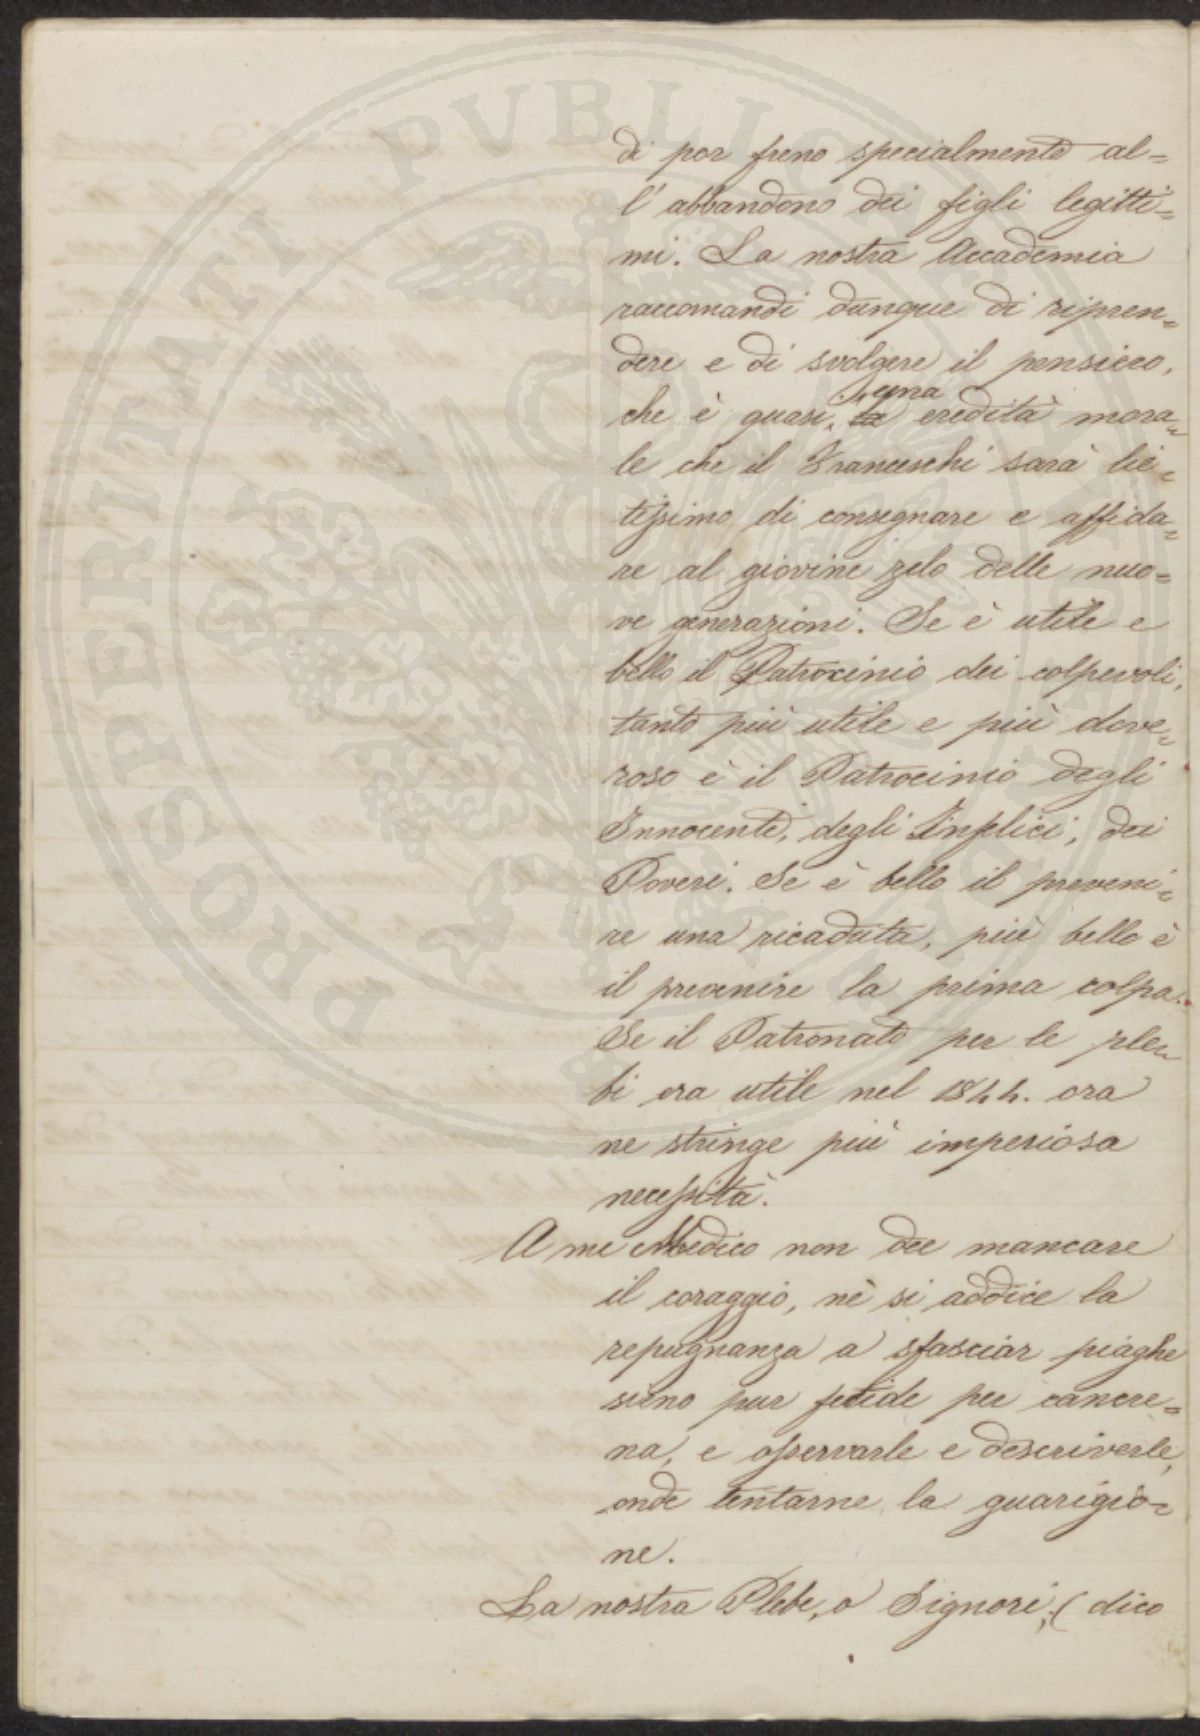 di por freno specialmente al=
l'abbandono dei figli legitti=
mi. La nostra Accademia
raccomandi dunque di ripren=
dere e di svolgere il pensiero,
che è quasi, la una eredità mora=
le che il Franceschi sarà lie=
tissimo di consegnare e affida=
re al giovine zelo delle nuo=
ve generazioni. Se è utile e
bello il Patrocinio dei colpevoli,
tanto più utile e più dove=
roso è il Patrocinio degli
Innocenti, degli Infelici, dei
Poveri. Se è bello il preveni=
re una ricaduta, più bello è
il prevenire la prima colpa.
Se il Patronato per le ple=
bi era utile nel 1844. ora
ne stringe più imperiosa
necessità.
A me Medico non dee mancare
il coraggio, nè si addice la
repugnanza a sfasciar piaghe
sieno pur fetide per cancre=
na, e osservarle e descriverle,
onde tentarne la guarigio=
ne.
La nostra Plebe, o Signori, (dico
PROSPERITATI PVBLICAE